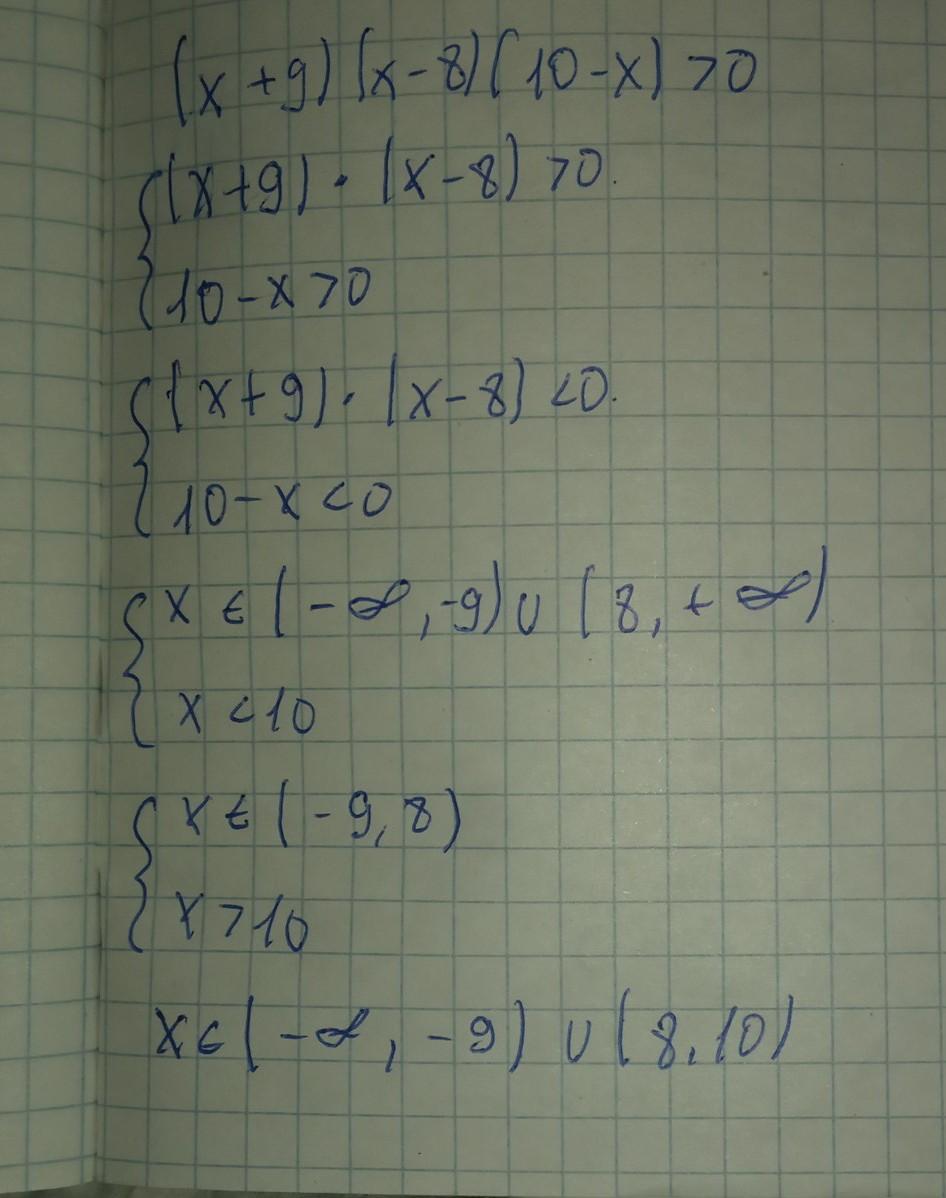 (x+9)(x-8)(10-x)>0
(x+9)·(x-8)>0.
10-x>0
(x+9)·(x-8)<0.
10-x<0
x∈(-∞,-9)∪(8,+∞)
x<10
x∈(-9,8)
x>10
x∈(-∞,-9)∪(8,10)